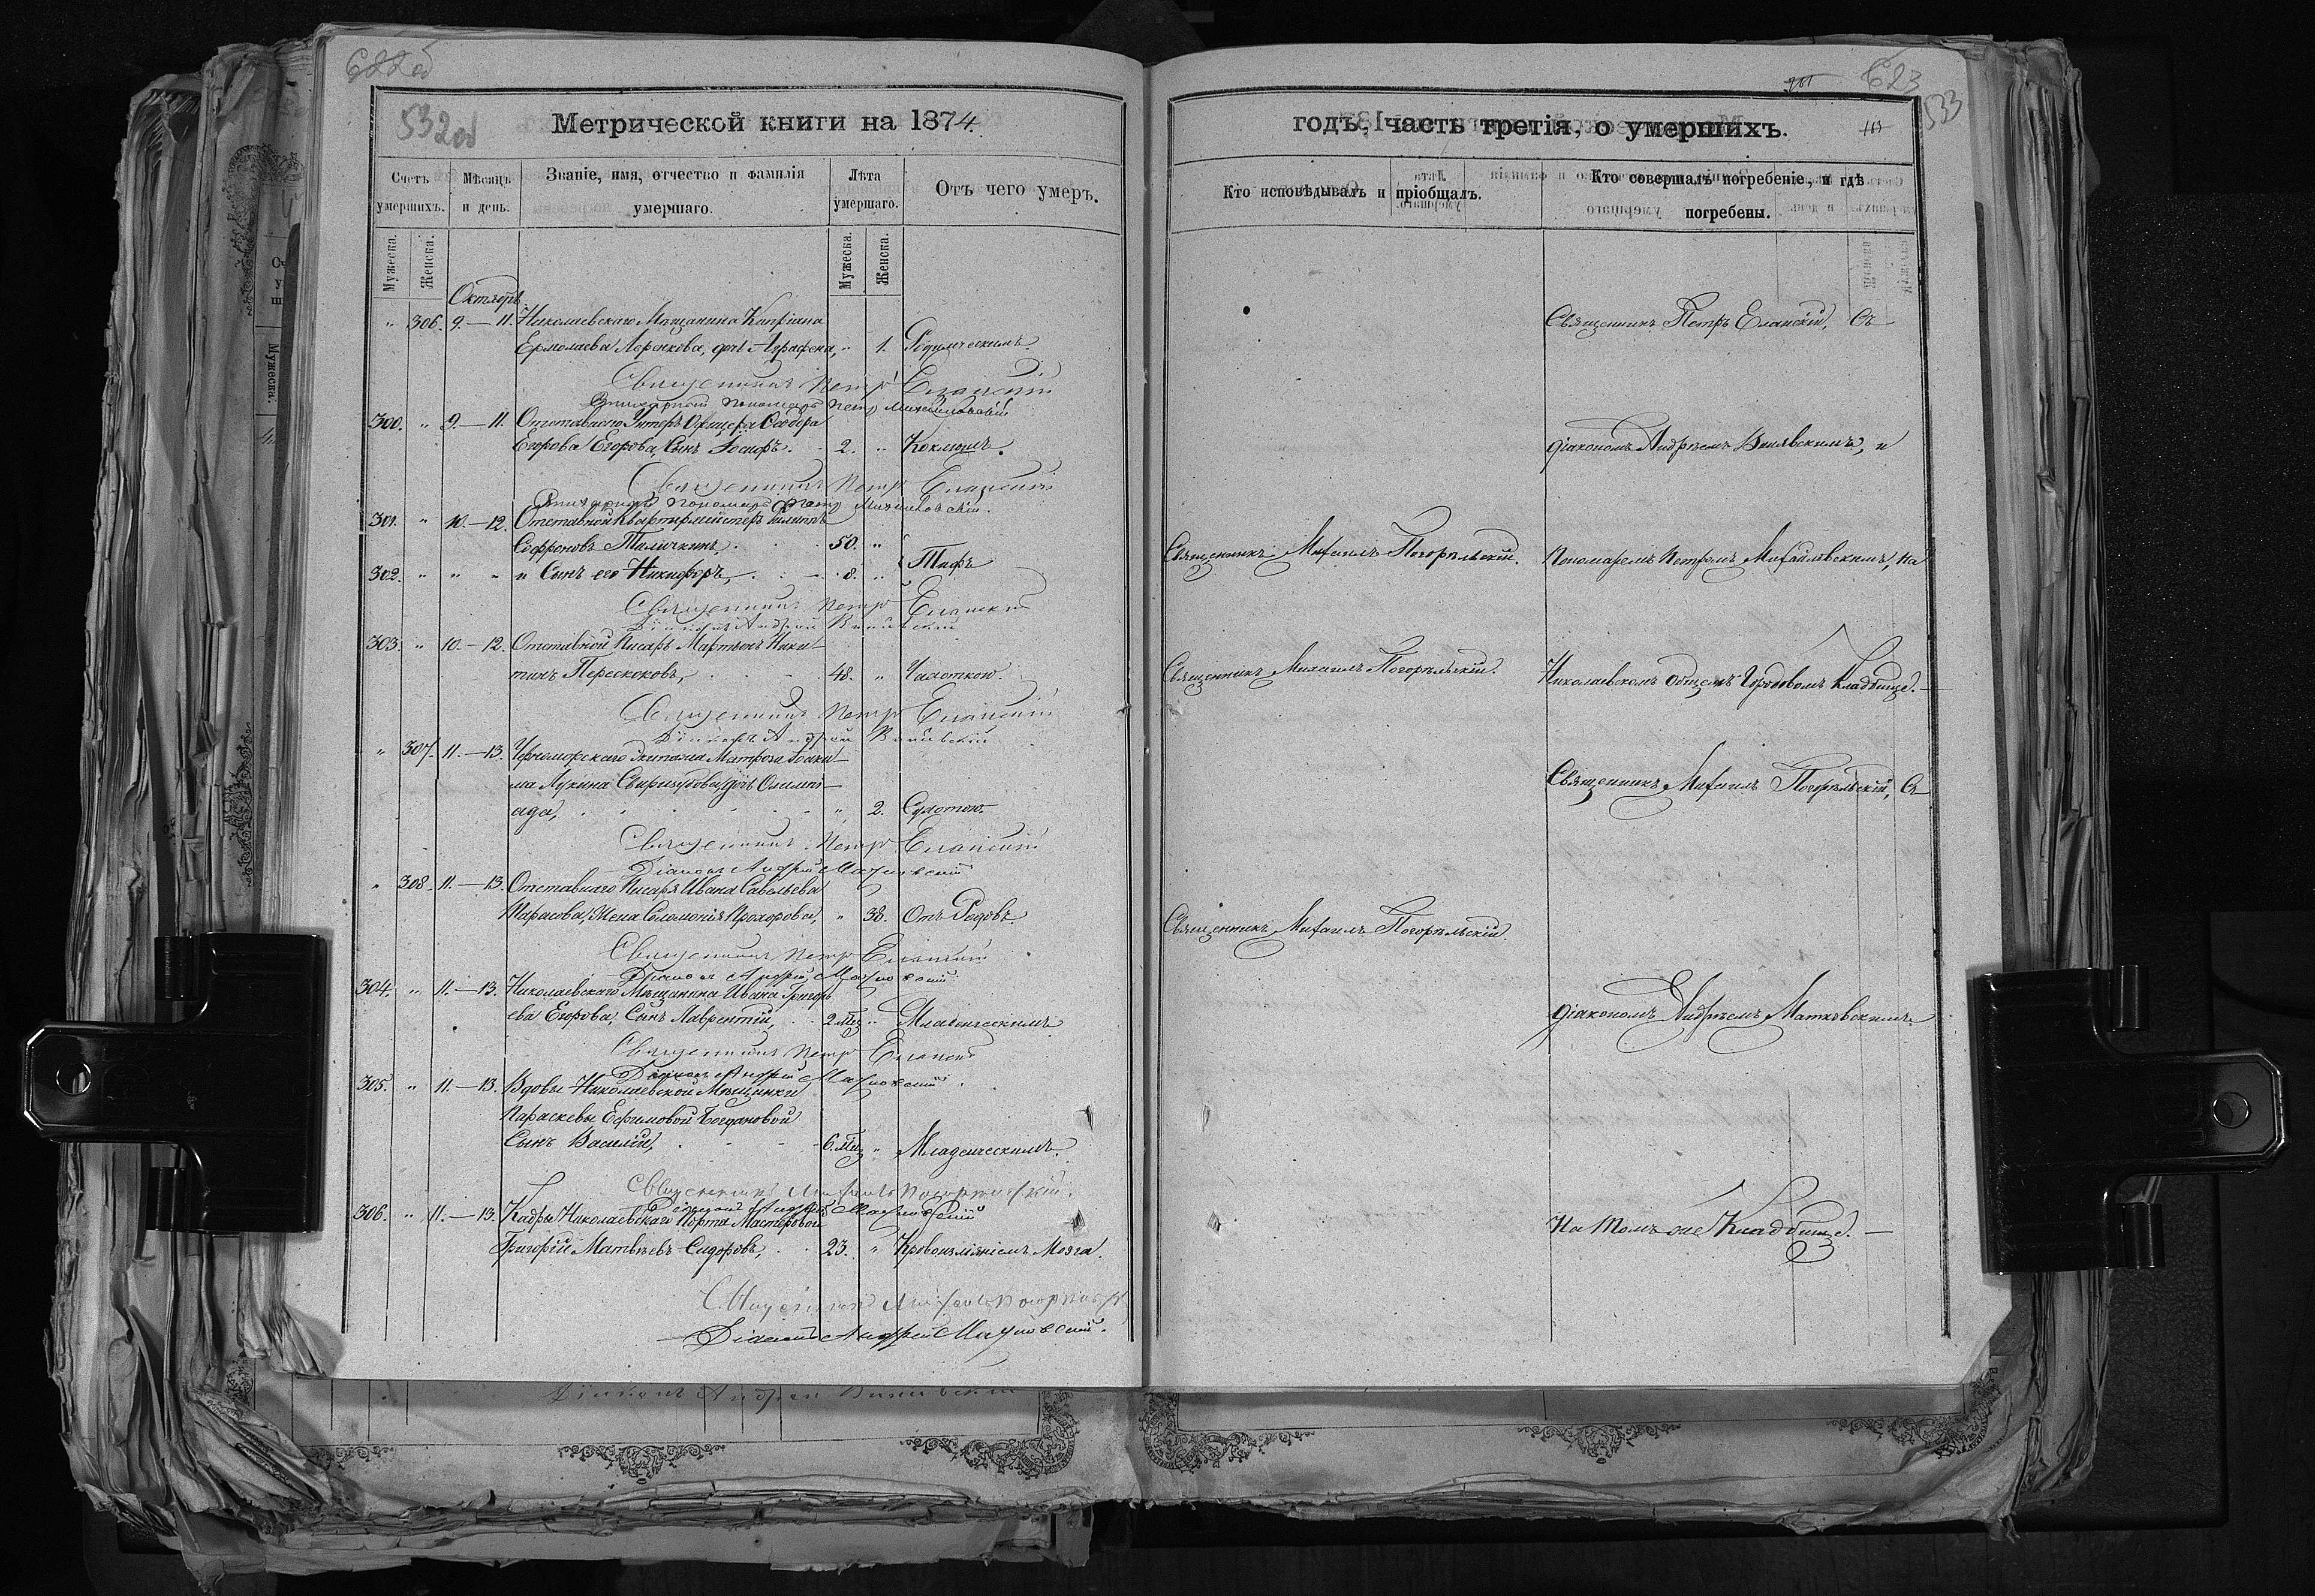 622об
532об
Метрической книги на 1874.
Счетъ умершихъ.
Мѣсяцъ и день.
Званіе, имя, отчество и фамилія умершаго.
Лѣта умершаго.
Отъ чего умеръ.
Мужеска.
Женска.
Мужеска.
Женска.
Октябрь
" 306. 9.—11. Николаевскаго Мѣщанина Кипріана
Ермолаева дочь Агрифена, " 1. Родимческимъ.
Священникъ Петръ Еланскій
Пономарь Петръ Михайловскій
300. " 9.—11. Отставнаго Унтеръ Офицера Ѳеодора
Егорова Егорова, Сынъ Іосифъ. 2. " Коклюшъ.
Священникъ Петръ Еланскій
Пономарь Петръ Михайловскій.
301. " 10.—12. Отставной Квартирмейстеръ Филиппъ
Софроновъ 50. "
302. " " " и Сынъ его Никифоръ, 8. " Тифъ
Священникъ Петръ Еланскій
Діаконъ Андрей
303. " 10.—12. Отставной Писарь Мартынъ Ники-
тинъ Перескоковъ, 48. " Чахоткою.
Священникъ Петръ Еланскій
Діаконъ Андрей
" 307. 11.—13. Черноморскаго Экипажа Матроса Іоаки-
ма Лукина дочь Олимпі-
ада, " 2. Сухотою.
Священникъ Петръ Еланскій
Діаконъ Андрей
" 308. 11.—13. Отставнаго Писаря Ивана Савельева
Тарасова, Жена Соломонія Прохорова, " 38. Отъ Родовъ.
Священникъ Петръ Еланскій
Діаконъ Андрей
304. " 11.—13. Николаевскаго Мѣщанина Ивана Григорь-
ева Егорова, Сынъ Лаврентій, 2. мѣц " Младенческимъ
Священникъ Петръ Еланскій
Діаконъ Андрей
305. " 11.—13. Вдовы Николаевской Мѣщанки
Параскевы Ефимовой Богдановой
Сынъ Василій, 6. мѣц " Младенческимъ.
Священникъ Михаилъ Погорѣльскій.
Діаконъ Андрей
306. " 11.—13. Кадры Николаевскаго Порта Мастеровой
Григорій Матвѣевъ Сидоровъ, 23. " Кровоизліяніемъ Мозга.
Священникъ Михаилъ Погорѣльскій
Діаконъ Андрей
623
533
годъ, часть третія, о умершихъ.
Кто исповѣдывалъ и пріобщалъ.
Кто совершалъ погребеніе, и гдѣ погребены.
Священникъ Петръ Еланскій, Съ
діакономъ Андреемъ и
Священникъ Михаилъ Погорѣльскій.
Пономаремъ Петромъ Михайловскимъ, на
Священникъ Михаилъ Погорѣльскій.
Николаевскомъ общемъ Городовомъ Кладбище.—
Священникъ Михаилъ Погорѣльскій, Съ
Священникъ Михаилъ Погорѣльскій.
діакономъ Андреемъ
На томъ же Кладбище.—